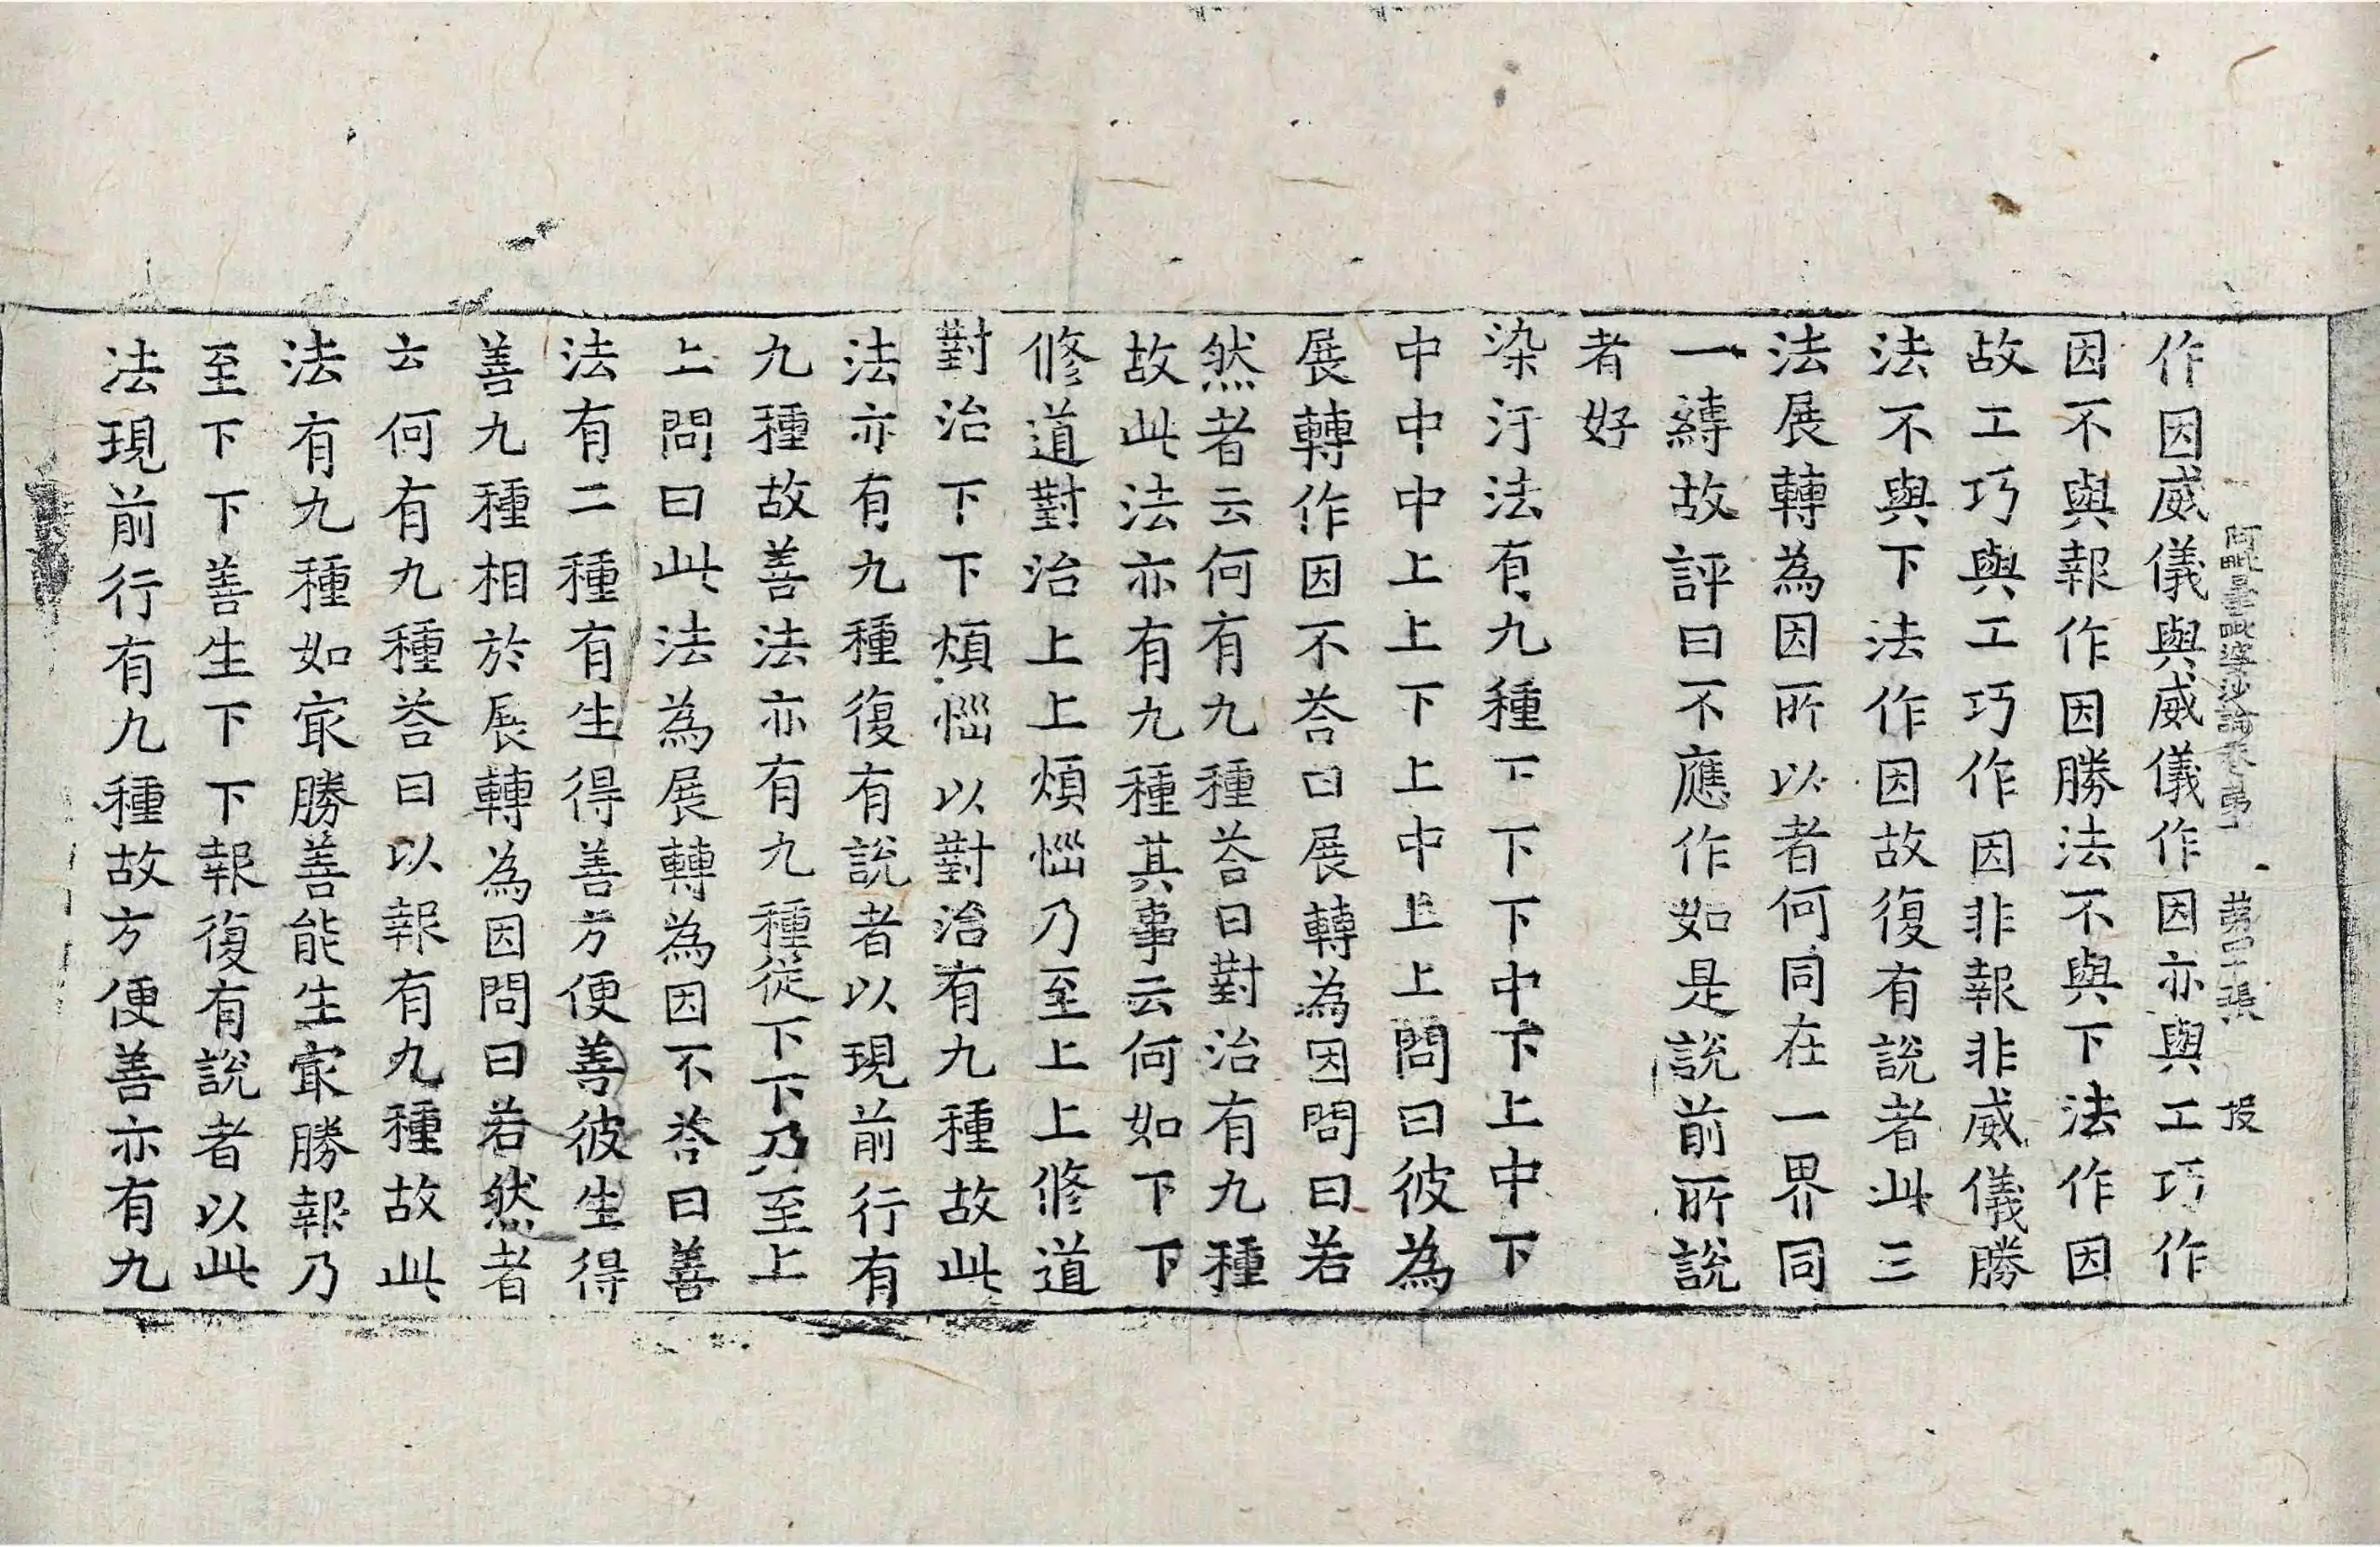 作因威儀與威儀作因亦與工巧作
阿毗曇毗婆沙論卷 第 張 投
因不與報作因勝法不與下法作因
故工巧與工巧作因非報非威儀勝
法不與下法作因故復有説者此三
法展轉為因所以者何同在一界同
一縛故評曰不應作如是説前所説
者好
染汙法有九種下下下中下上中下
中中中上上下上中上上問曰彼為
展轉作因不荅曰展轉為因問曰若
然者云何有九種荅曰對治有九種
故此法亦有九種其事云何如下下
修道對治上上煩惱乃至上上修道
對治下下煩惱以對治有九種故此
法亦有九種復有説者以現前行有
九種故善法亦有九種從下下乃至上
上問曰此法為展轉為因不荅曰善
法有二種有生得善方便善彼生得
善九種相於展轉為因問曰若然者
云何有九種荅曰以報有九種故此
法有九種如㝡勝善能生㝡勝報乃
至下下善生下下報復有説者以此
法現前行有九種故方便善亦有九